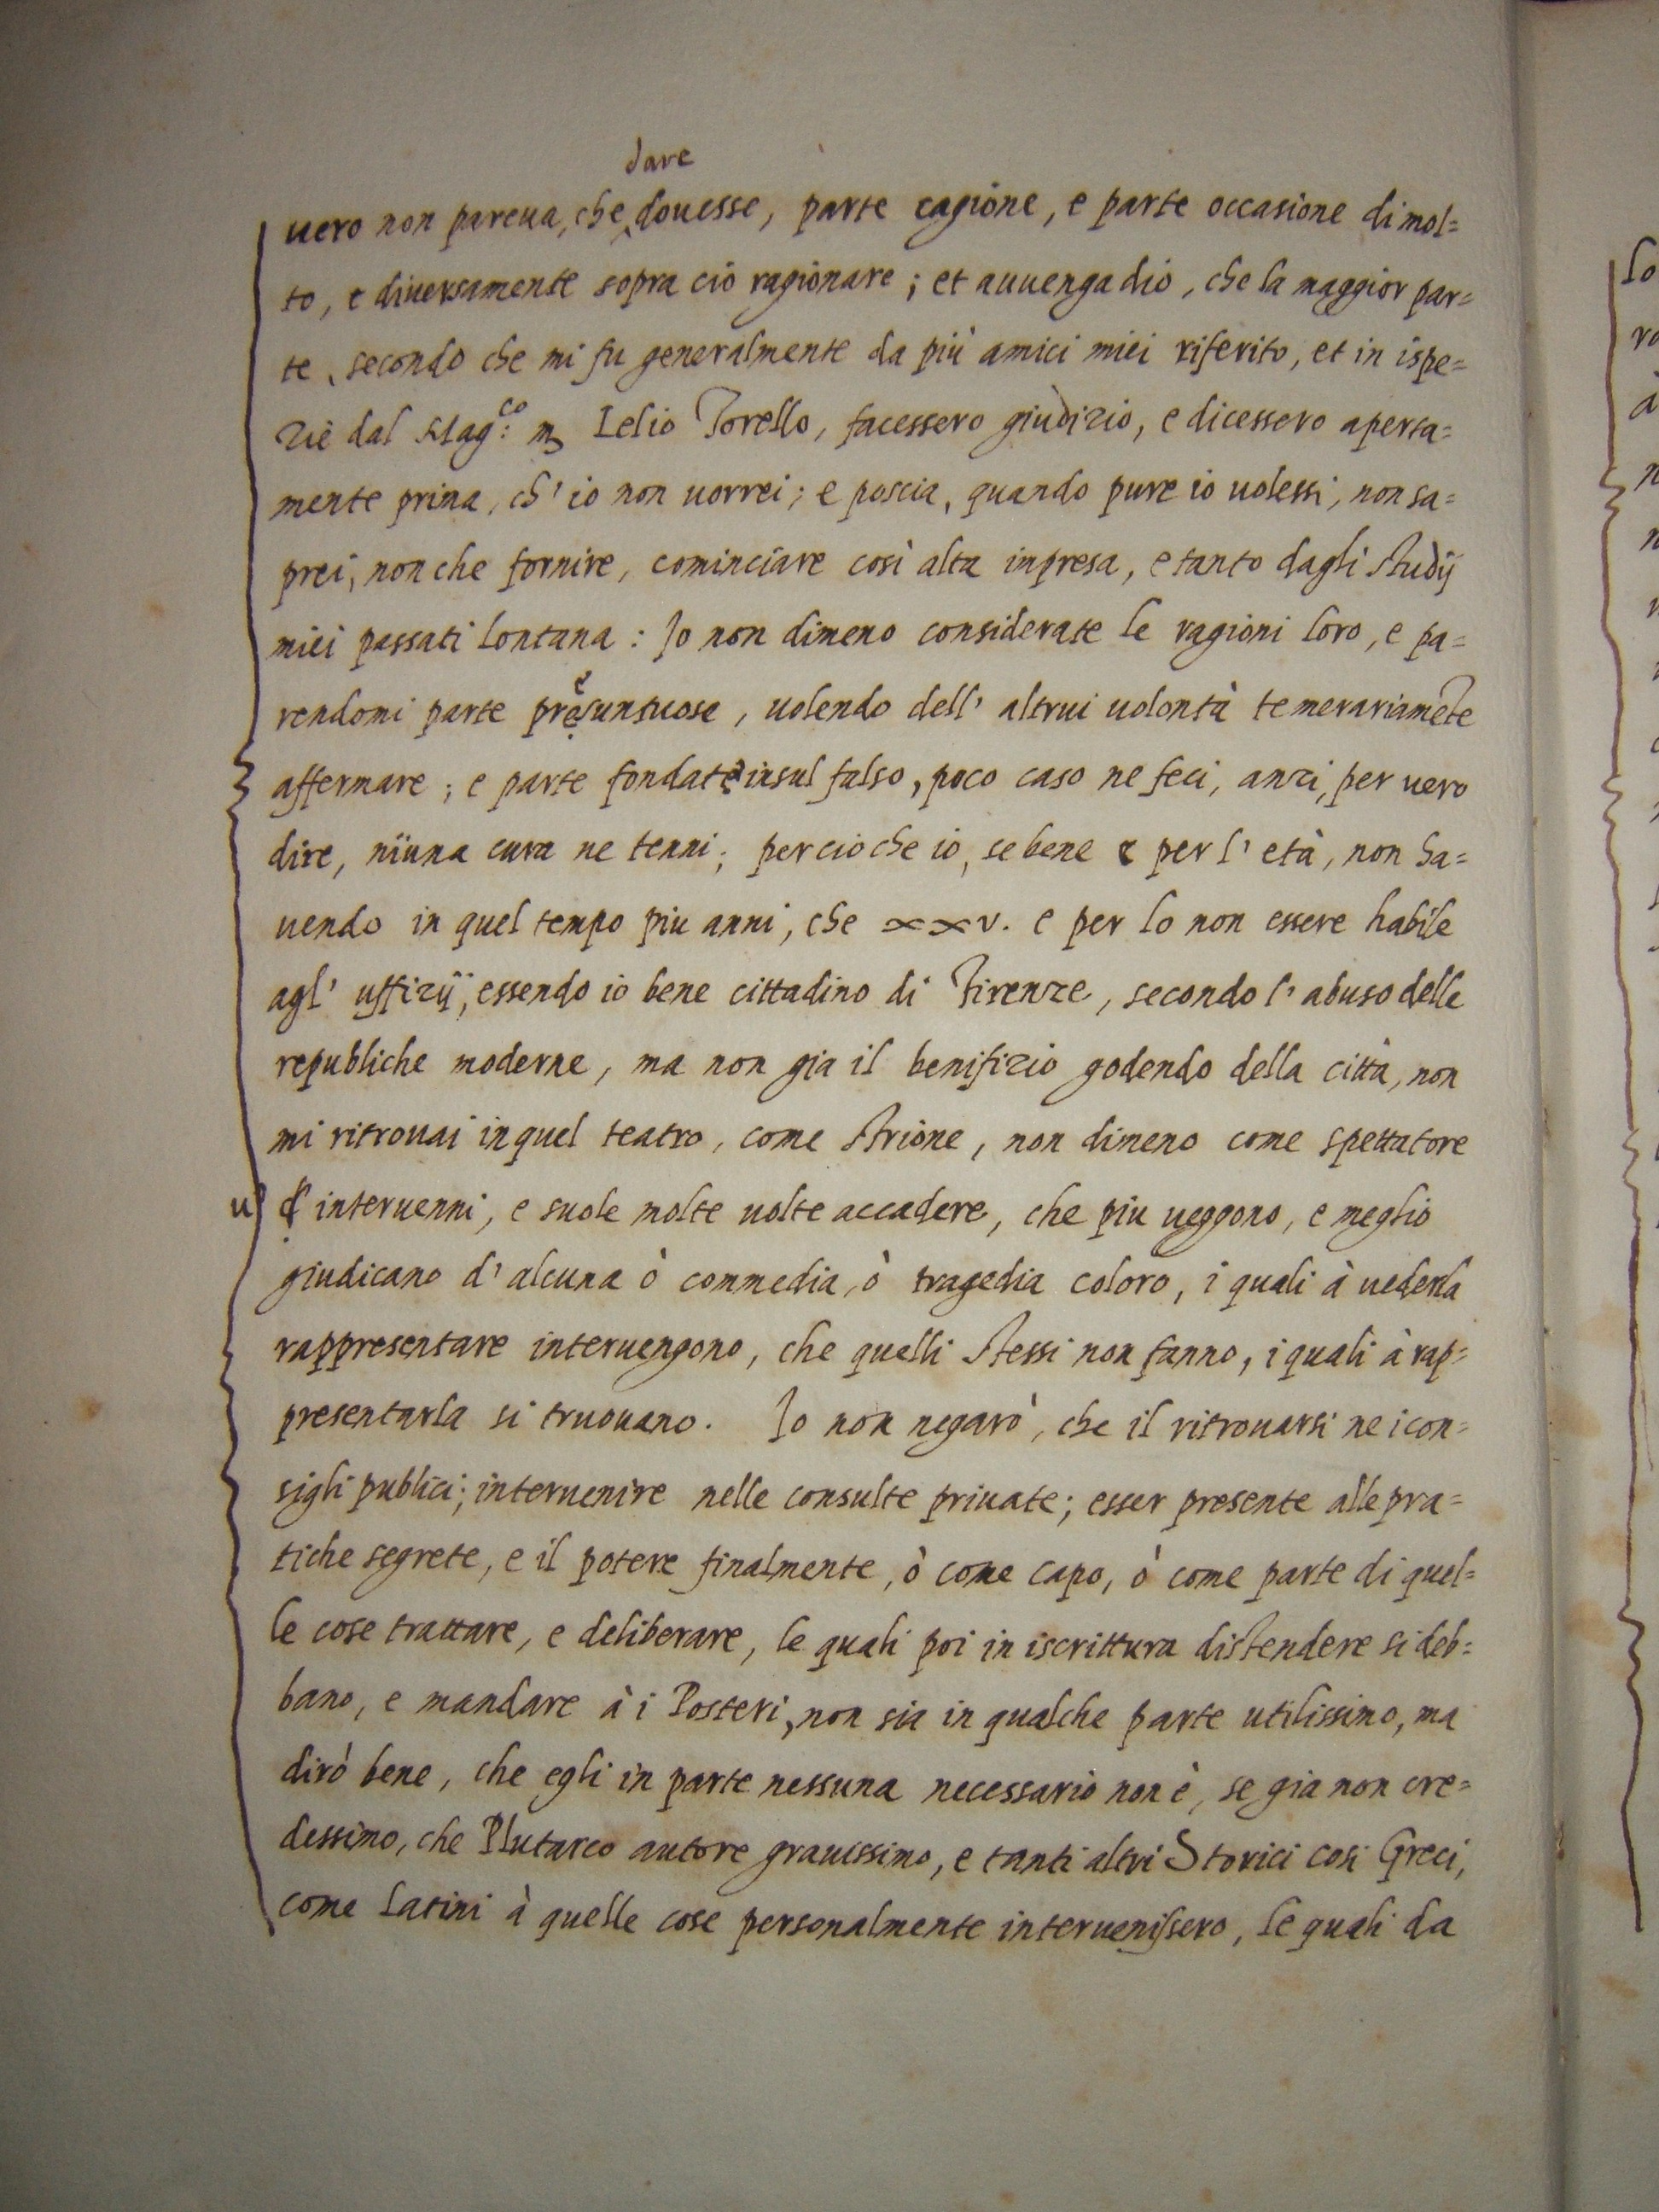 dare
uero non pareua, che douesse, parte cagione, e parte occasione di mol=
to, e diuersamente sopra ciò ragionare; et auuenga dio, che la maggior par=
te, secondo che mi fu generalmente da più amici miei riferito, et in ispe=
zie dal Mag:co m Lelio Torello, facessero giudizio, e dicessero aperta=
mente prima, ch' io non uorrei; e poscia, quando pure io uolessi, non sa=
prei, non che fornire, cominciare così alta inpresa, e tanto dagli studij
miei passati lontana: Io non dimeno considerate le ragioni loro, e pa=
rendomi parte presuntuose, uolendo dell' altrui uolontà temerariamẽte
affermare; e parte fondate insul falso, poco caso ne feci, anzi, per uero
dire, niuna cura ne tenni; percioche io, se bene e per l' età, non ha=
uendo in quel tempo piu anni, che xxv. e per lo non essere habile
agl' uffizij, essendo io bene cittadino di Firenze, secondo l' abuso delle
republiche moderne, ma non gia il benifizio godendo della città, non
mi ritrouai in quel teatro, come strione, non dimeno come spettatore
u' interuenni, e suole molte uolte accadere, che piu ueggono, e meglio
giudicano d' alcuna ò commedia, ò tragedia coloro, i quali à uederla
rappresentare interuengono, che quelli stessi non fanno, i quali à rap=
presentarla si truouano. Io non negarò, che il ritrouarsi ne i con=
sigli publici; interuenire nelle consulte priuate; esser presente alle pra=
tiche segrete, e il potere finalmente, ò come capo, ò come parte di quel=
le cose trattare, e deliberare, le quali poi in iscrittura distendere si deb=
bano, e mandare à i Posteri, non sia in qualche parte utilissimo, ma
dirò bene, che egli in parte nessuna necessario non è, se gia non cre=
dessimo, che Plutarco autore grauissimo, e tanti altri Storici cosi Greci,
come Latini à quelle cose personalmente interuenissero, le quali da